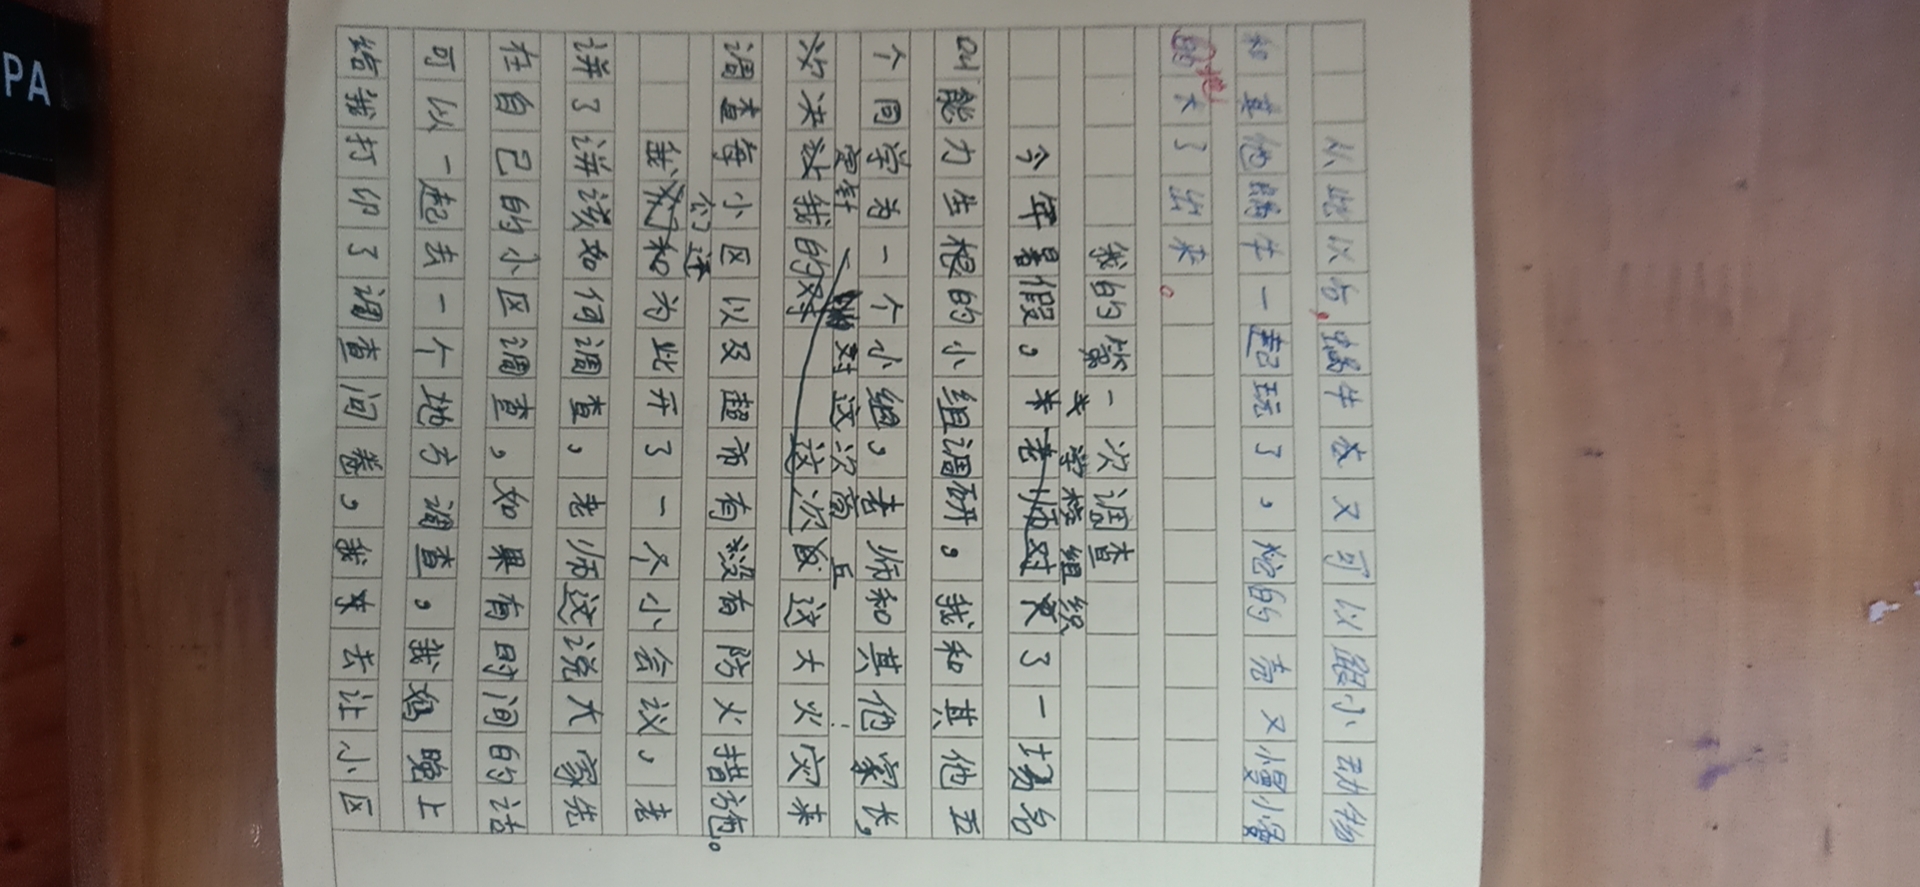 PA
从此以后,蜗牛友又可以跟小动物
和其他蜗牛一起玩了,它的壳又慢慢
地大了出来。
我的第一次调查
今年暑假,学校组织了一场名
叫能力生根的小组调研。我和其他五
个同学为一个小组,老师和其他家长,
次决这次这大火灾来
调查每小区以及超市有没有防火措施。
我们还为此开了一个小会议,老
讲了讲该如何调查,老师这说大家先
在自己的小区调查,如果有时间的话
可以一起去一个地方调查。我妈晚上
给我打印了调查问卷,我去让小区